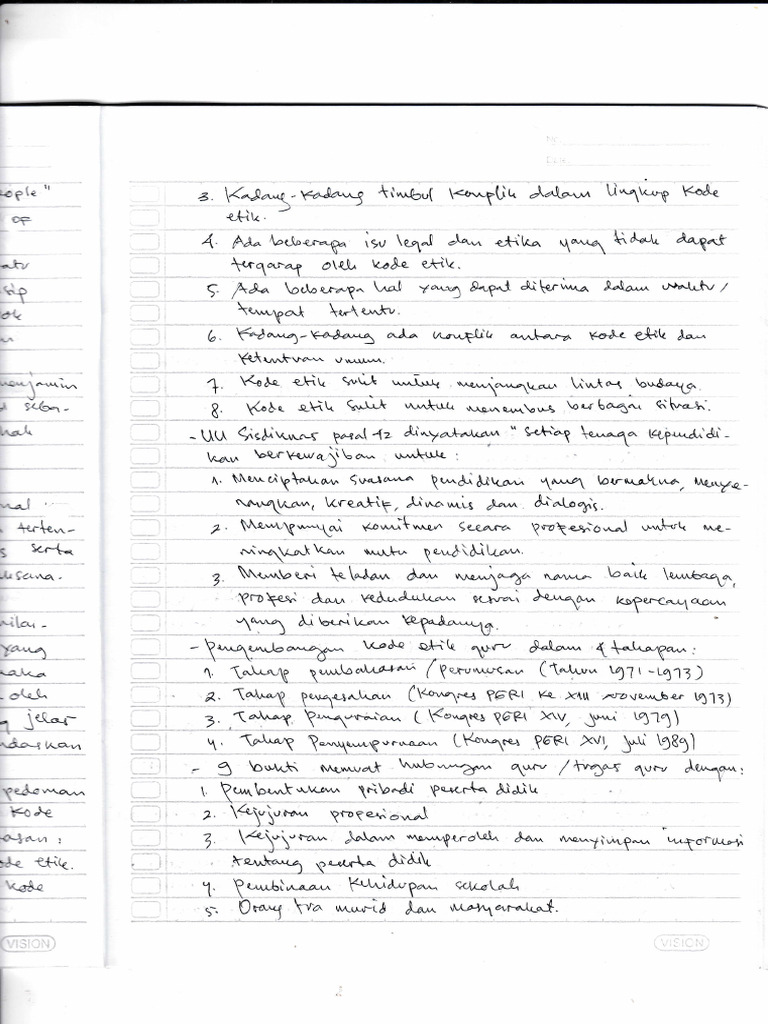 ople"
OF
atu
sip
ok
n
menjamin
d seba-
hak
nal
n terten-
s serta
ksana.
nilai-
yang
maka
oleh
g jelas
ndaskan
pedoman
kode
asan:
ode etik.
kode
VISION
3. Kadang-kadang timbul konplik dalam lingkup kode
etik.
4. Ada beberapa isu legal dan etika yang tidak dapat
tergarap oleh kode etik.
5. Ada beberapa hal yang dapat diterima dalam waktu/
tempat tertentu.
6. Kadang-kadang ada konplik antara kode etik dan
ketentuan umum.
7. Kode etik sulit untuk menjangkau lintas budaya.
8. Kode etik sulit untuk menembus berbagai situasi.
- UU Sisdiknas pasal 42 dinyatakan "setiap tenaga kependidi-
kan berkewajiban untuk:
1. Menciptakan suasana pendidikan yang bermakna, menye-
nangkan, kreatif, dinamis dan dialogis.
2. Mempunyai komitmen secara profesional untuk me-
ningkatkan mutu pendidikan.
3. Memberi teladan dan menjaga nama baik lembaga,
profesi dan kedudukan sesuai dengan kepercayaan
yang diberikan kepadanya.
- Pengembangan kode etik guru dalam 4 tahapan:
1. Tahap pembahasan/perumusan (Tahun 1971-1973)
2. Tahap pengesahan (Kongres PGRI ke XIII November 1973)
3. Tahap Penguraian (Kongres PGRI XIV, Juni 1979)
4. Tahap Penyempurnaan (Kongres PGRI XVI, Juli 1989)
- 9 bukti memuat hubungan guru/tugas guru dengan:
1. Pembentukan pribadi peserta didik
2. Kejujuran propesional
3. Kejujuran dalam memperoleh dan menyimpan informasi
tentang peserta didik
4. Pembinaan Kehidupan sekolah
5. Orang tua murid dan masyarakat.
VISION